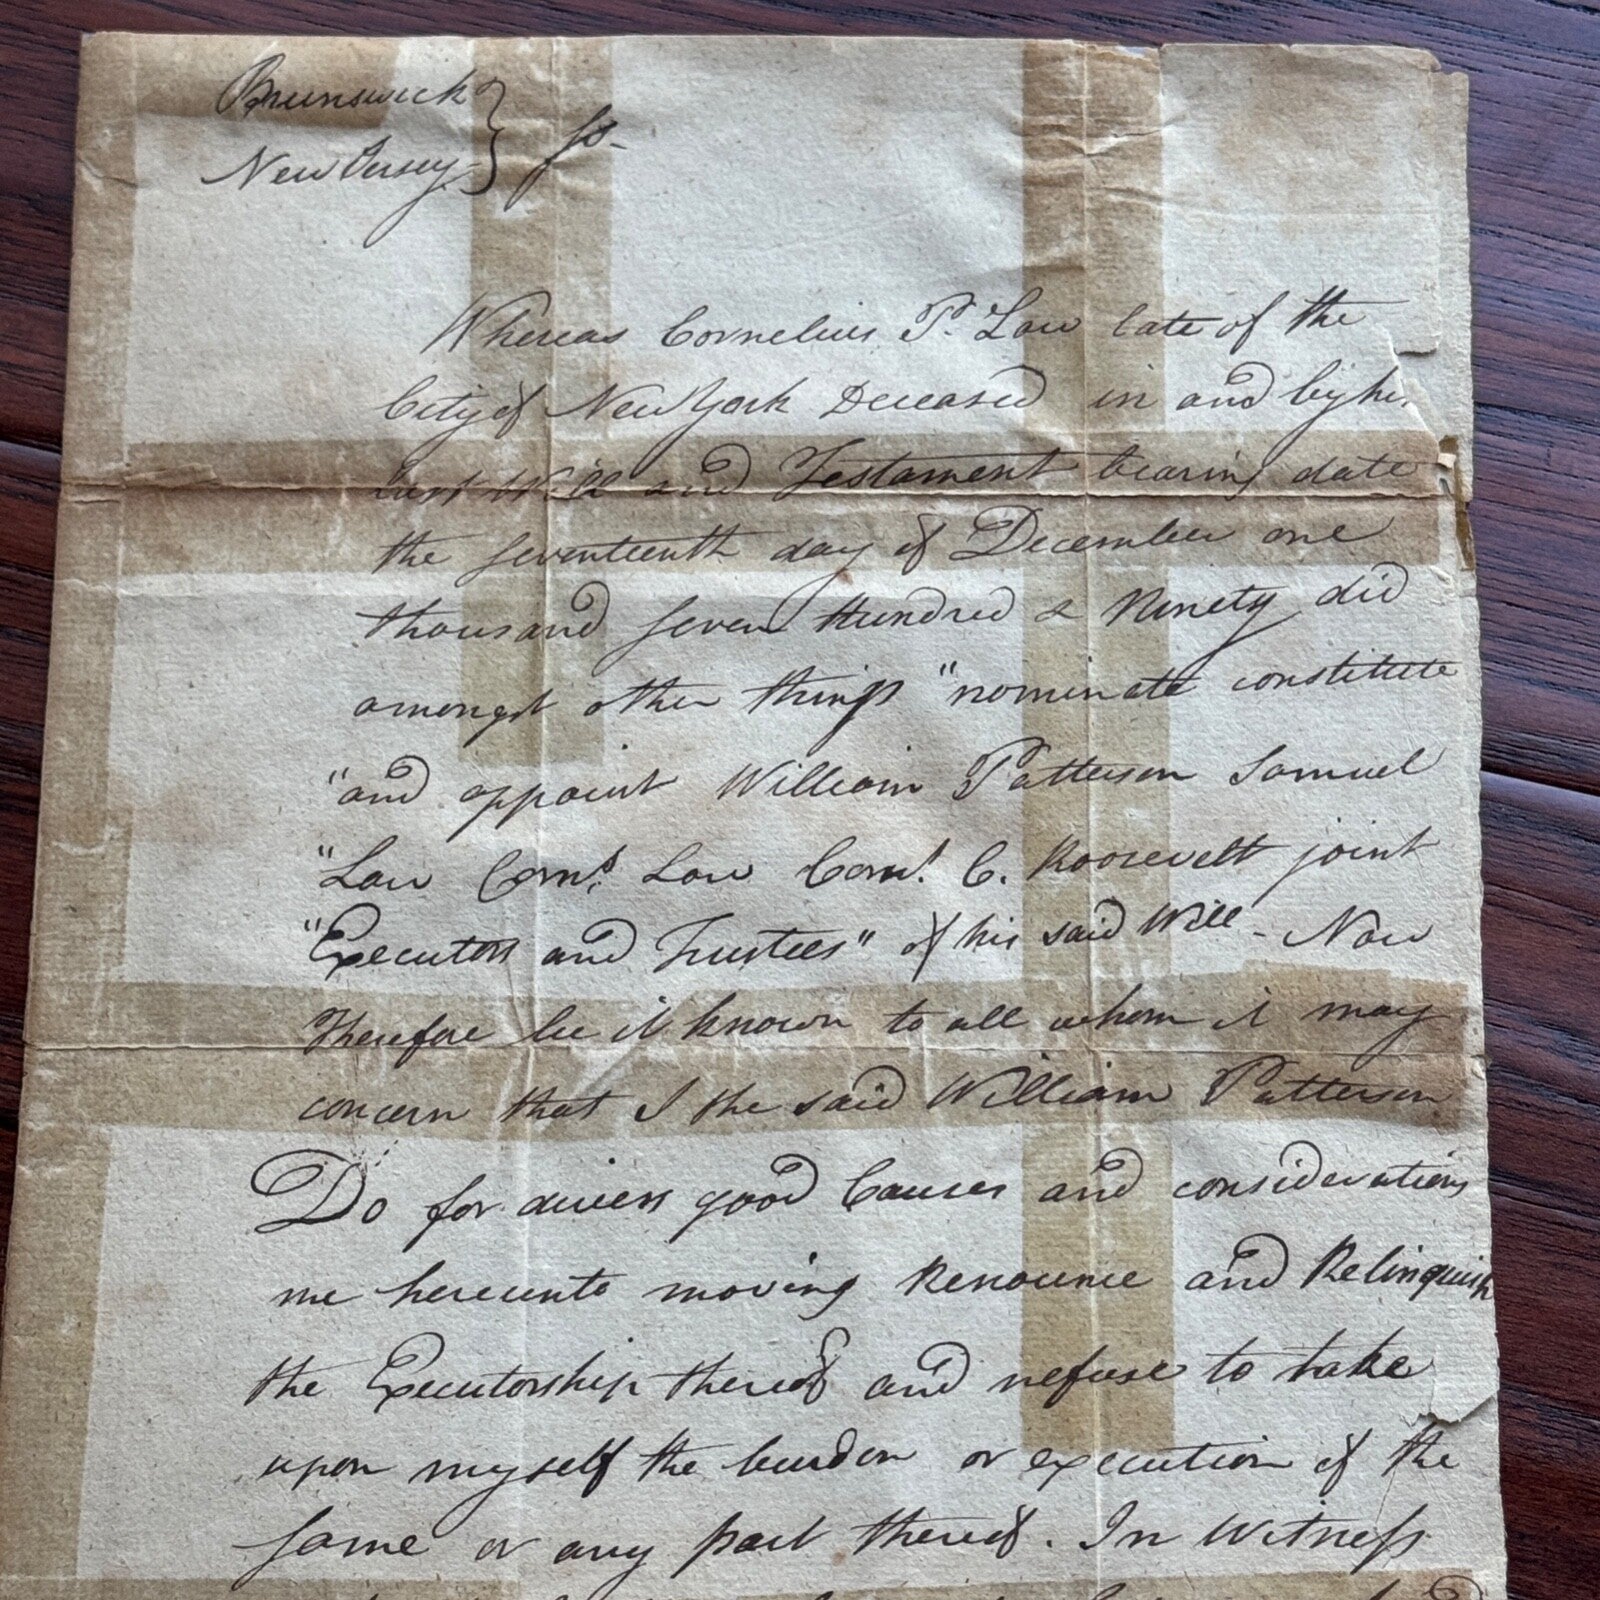 Brunswick
New Jersey } ss.
Whereas Cornelius P. Low late of the
City of New York Deceased in and by his
Last Will and Testament bearing date
the seventeenth day of December one
thousand seven Hundred & Ninety did
amongst other things "nominate constitute
"and appoint William Patterson Samuel
"Low Corns. Low Corns. C. Roosevelt joint
"Executors and Trustees" of his said Will - Now
Therefore be it known to all whom it may
concern that I the said William Patterson
Do for divers good Causes and considerations
me hereunto moving Renounce and Relinquish
the Executorship thereof and refuse to take
upon myself the burden or execution of the
same or any part thereof. In Witness